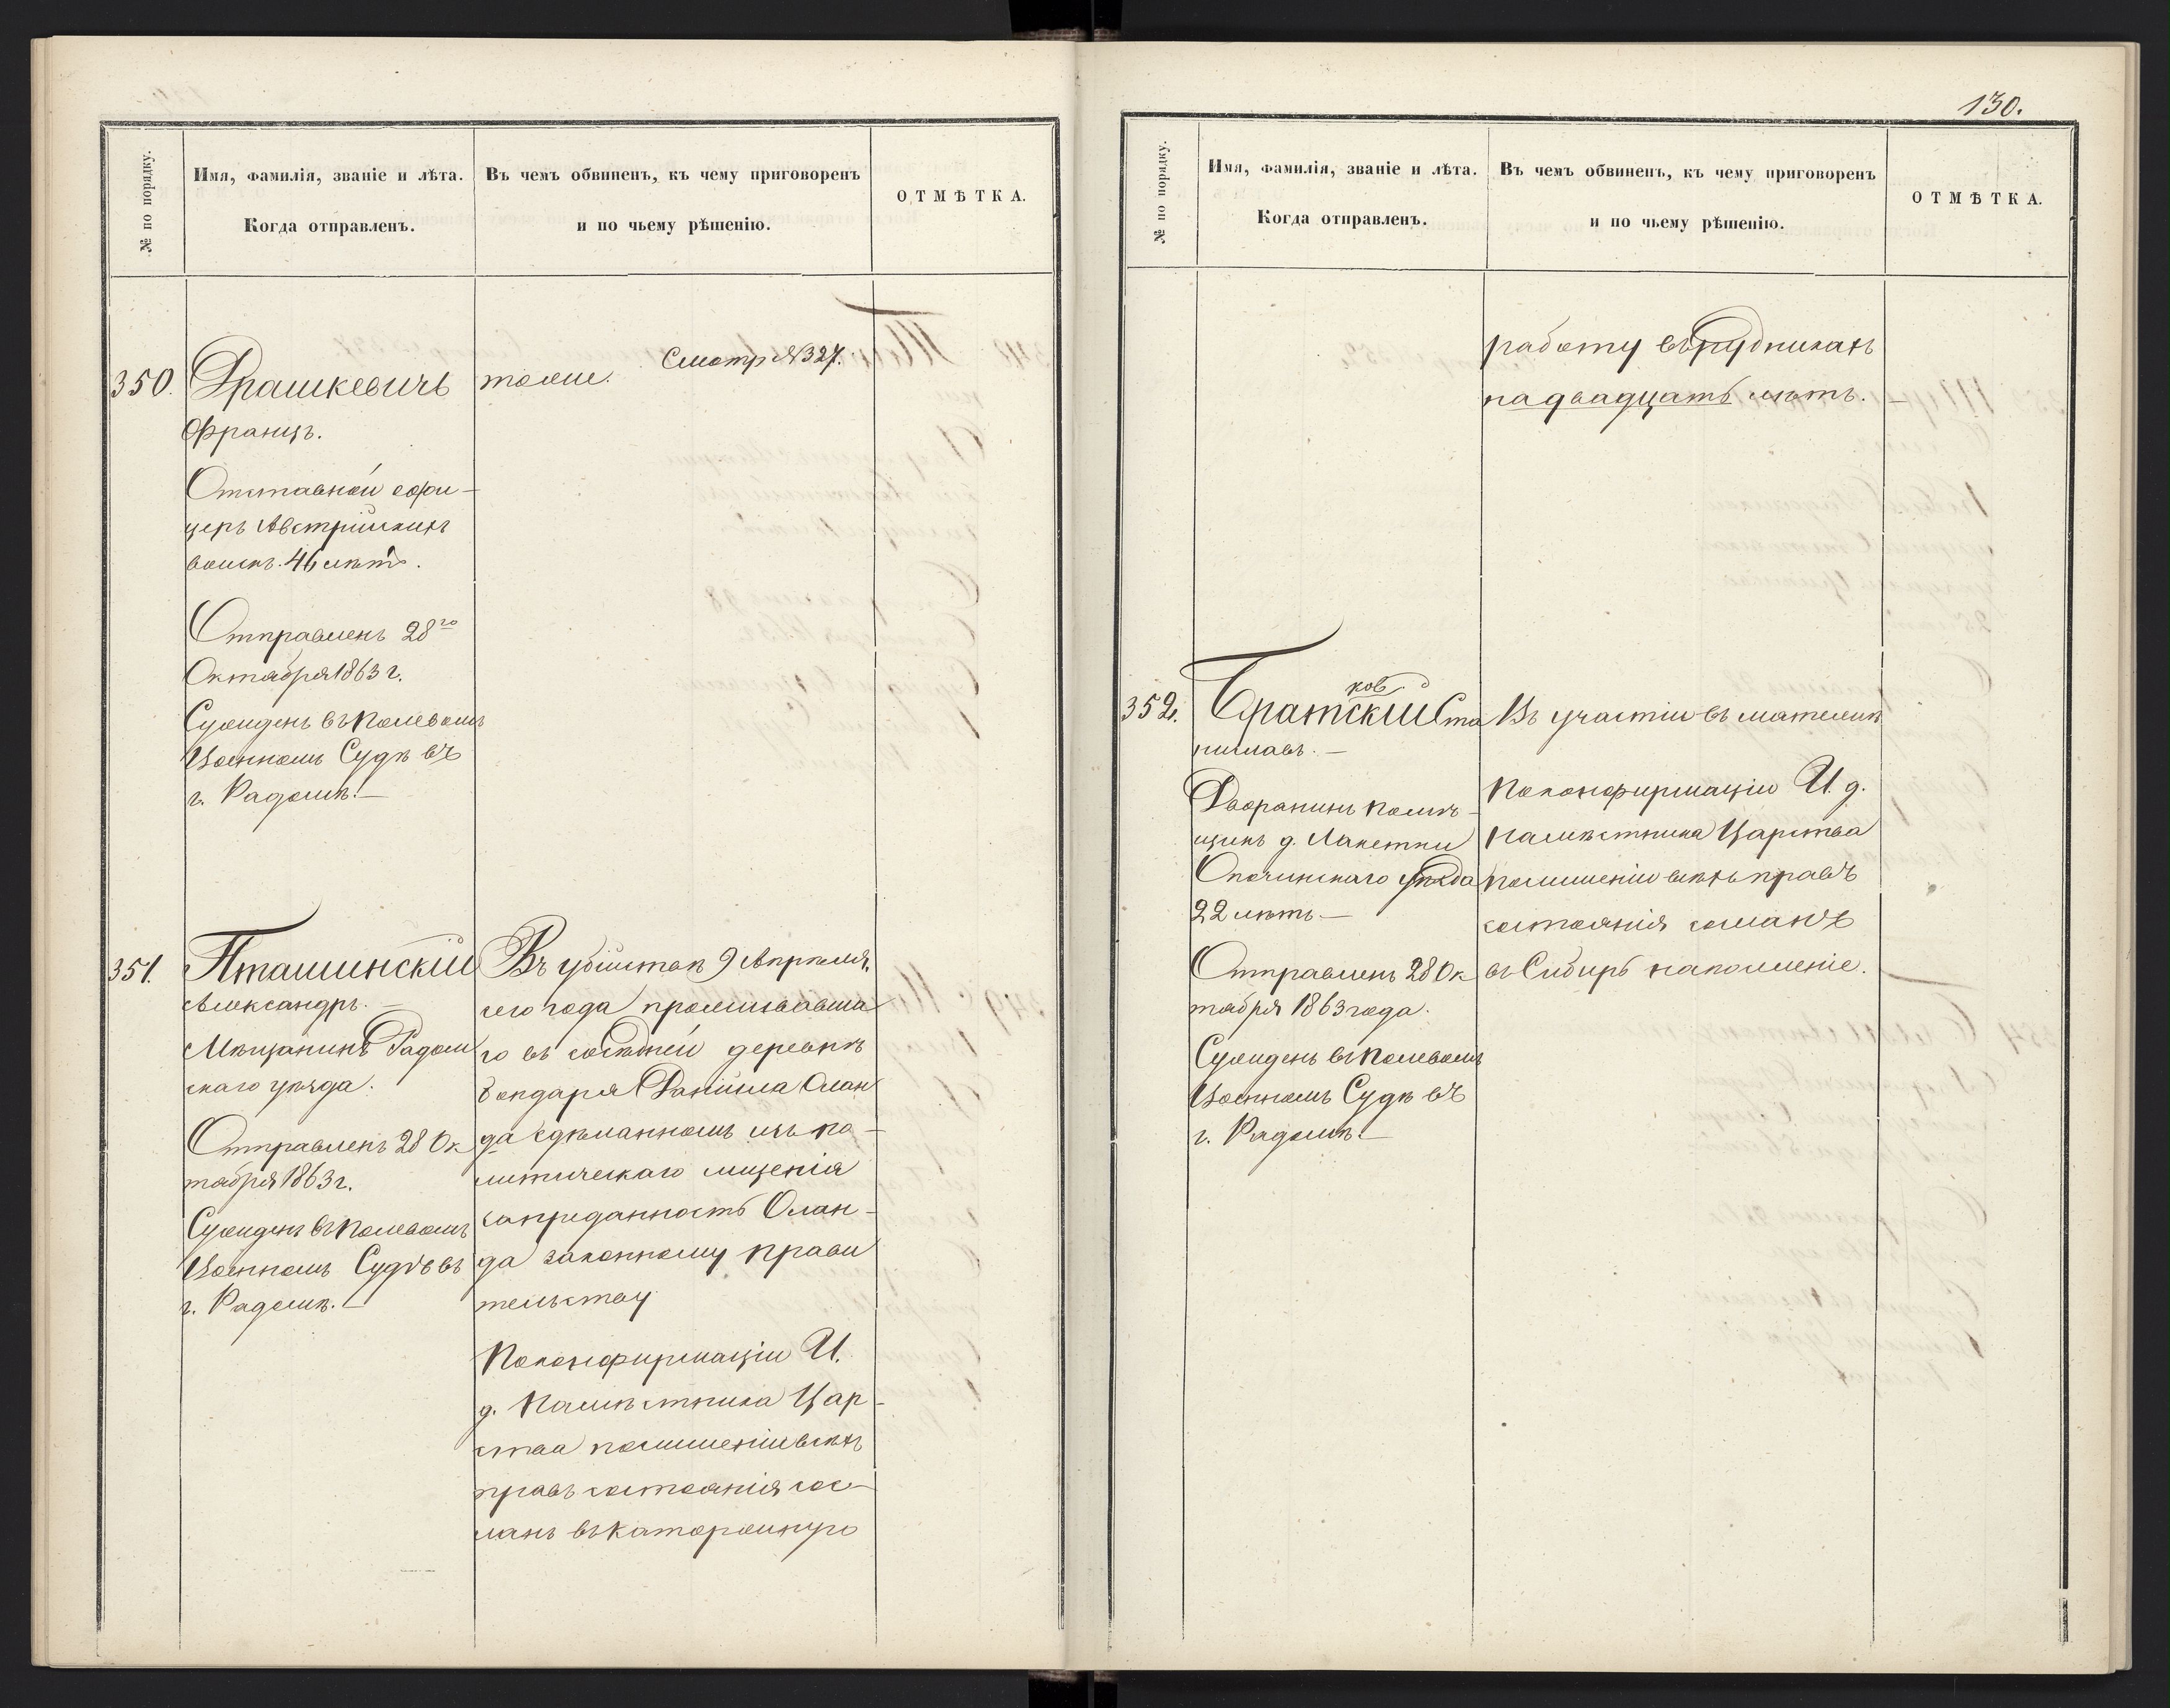 № по порядку.
Имя, фамилія, званіе и лѣта.
Когда отправленъ.
Въ чемъ обвиненъ, къ чему приговоренъ
и по чьему рѣшенію.
ОТМѢТКА.
350.
Драшкевичъ
Францъ.
Отставной офи-
церъ Австрійскихъ
войскъ. 46 лѣтъ.
Отправленъ 28го
Октября 1863 г.
Сужденъ въ Полевомъ
Военномъ Судѣ въ
г. Радомѣ.—
тоже.
Смотр. №327.
351.
Пташинскій
Александръ.—
Мѣщанинъ Радом
скаго уѣзда.
Отправленъ 28 Ок
тября 1863 г.
Сужденъ въ Полевомъ
Военномъ Судѣ въ
г. Радомѣ.—
Въ убійствѣ 9 Апрѣля,
сего года проживавша
го въ сосѣдней деревнѣ
бондаря Даніила Олан
да сдѣланномъ изъ по-
литическаго мщенія
за преданность Олан-
да законному прави
тельству
По конфирмаціи И.
д. Намѣстника Цар-
ства по лишеніи всѣхъ
правъ состоянія сос-
ланъ въ каторжную
130.
№ по порядку.
Имя, фамилія, званіе и лѣта.
Когда отправленъ.
Въ чемъ обвиненъ, къ чему приговоренъ
и по чьему рѣшенію.
ОТМѢТКА.
работу въ рудникахъ
на двадцать лѣтъ.—
352.
ков
Братскій Ста
ниславъ.—
Дворянинъ помѣ-
щикъ д.
Опочинскаго уѣзда
22 лѣтъ—
Отправленъ 28 Ок
тября 1863 года.
Сужденъ въ Полевомъ
Военномъ Судѣ въ
г. Радомѣ.—
Въ участіи въ мятежѣ
По конфирмаціи И. д.
Намѣстника Царства
по лишеніи всѣхъ правъ
состоянія сосланъ
въ Сибирь на поселеніе.